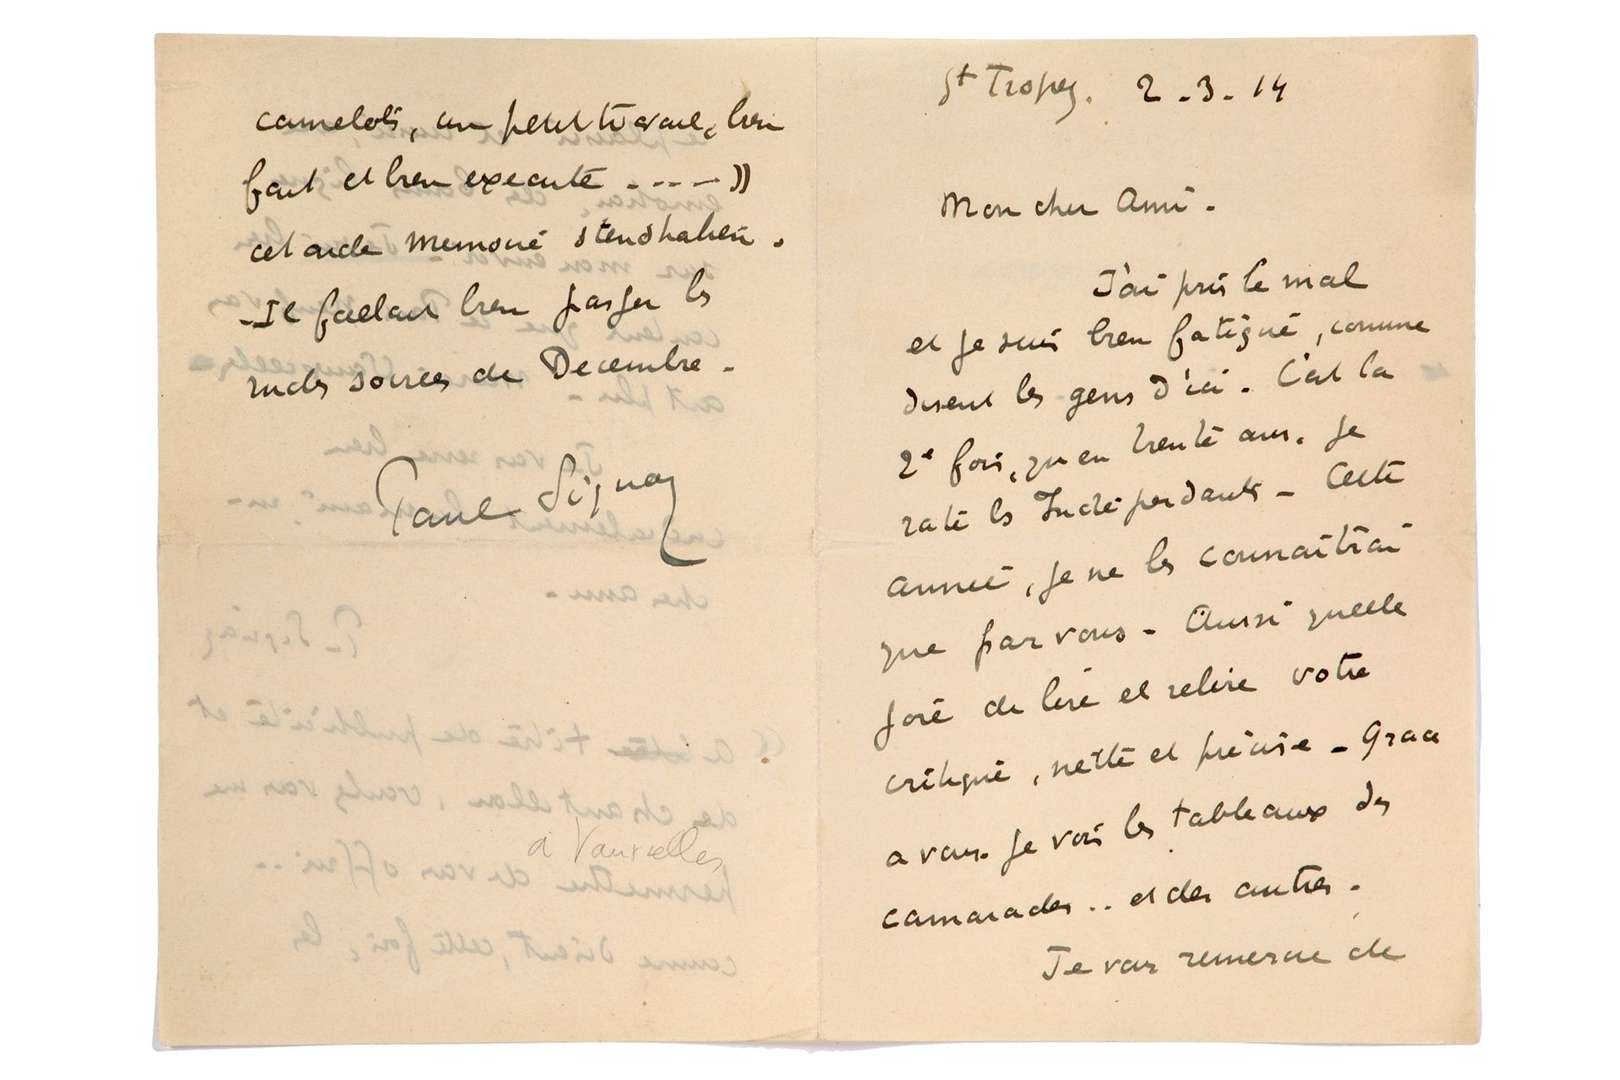 St Tropez. 2-3-14
Mon cher Ami.
J'ai pris le mal
et je suis bien fatigué, comme
disent les gens d'ici. C'est la
2e fois, qu'en trente ans, je
rate les Indépendants - Cette
année, je ne les connaîtrai
que par vous - Aussi quelle
joie de lire et relire votre
critique, nette et précise - Grace
a vous je vois les tableaux des
camarades .. et des autres.
Je vous remercie de
camelots, un petit travail, bien
fait et bien executé ----- ))
cet aide memoire stendhalien.
- Il fallait bien passer les
rudes soirées de Decembre -
Paul Signac
a Vauxcelles